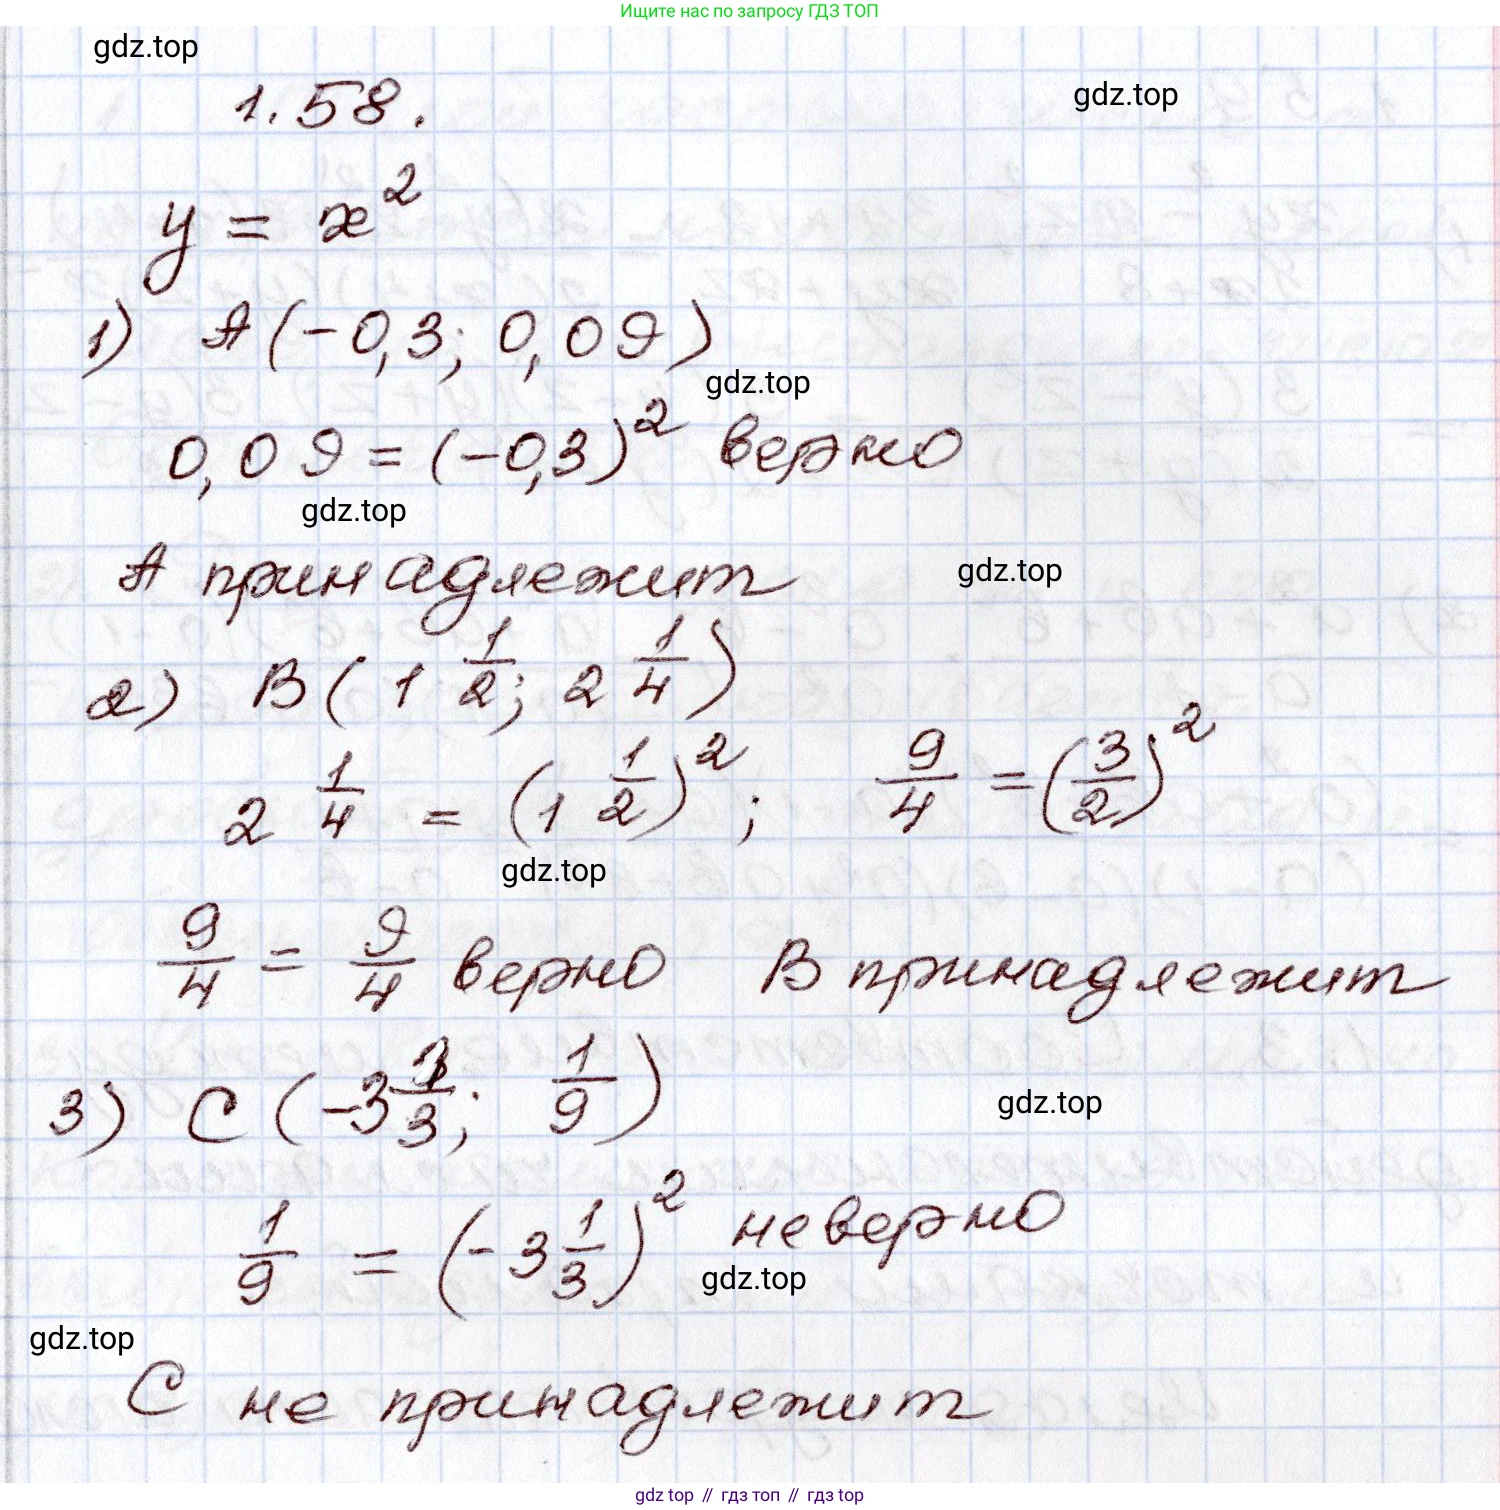 Ищите нас по запросу ГДЗ ТОП
gdz.top
1.58.
gdz.top
y = x²
1) A(-0,3; 0,09)
gdz.top
0,09 = (-0,3)² верно
gdz.top
A принадлежит
gdz.top
2) B(1 1/2; 2 1/4)
2 1/4 = (1 1/2)²; 9/4 = (3/2)²
gdz.top
9/4 = 9/4 верно B принадлежит
3) C(-3 1/3; 1/9)
gdz.top
1/9 = (-3 1/3)² неверно
gdz.top
gdz.top
C не принадлежит
gdz top // гдз топ // гдз top